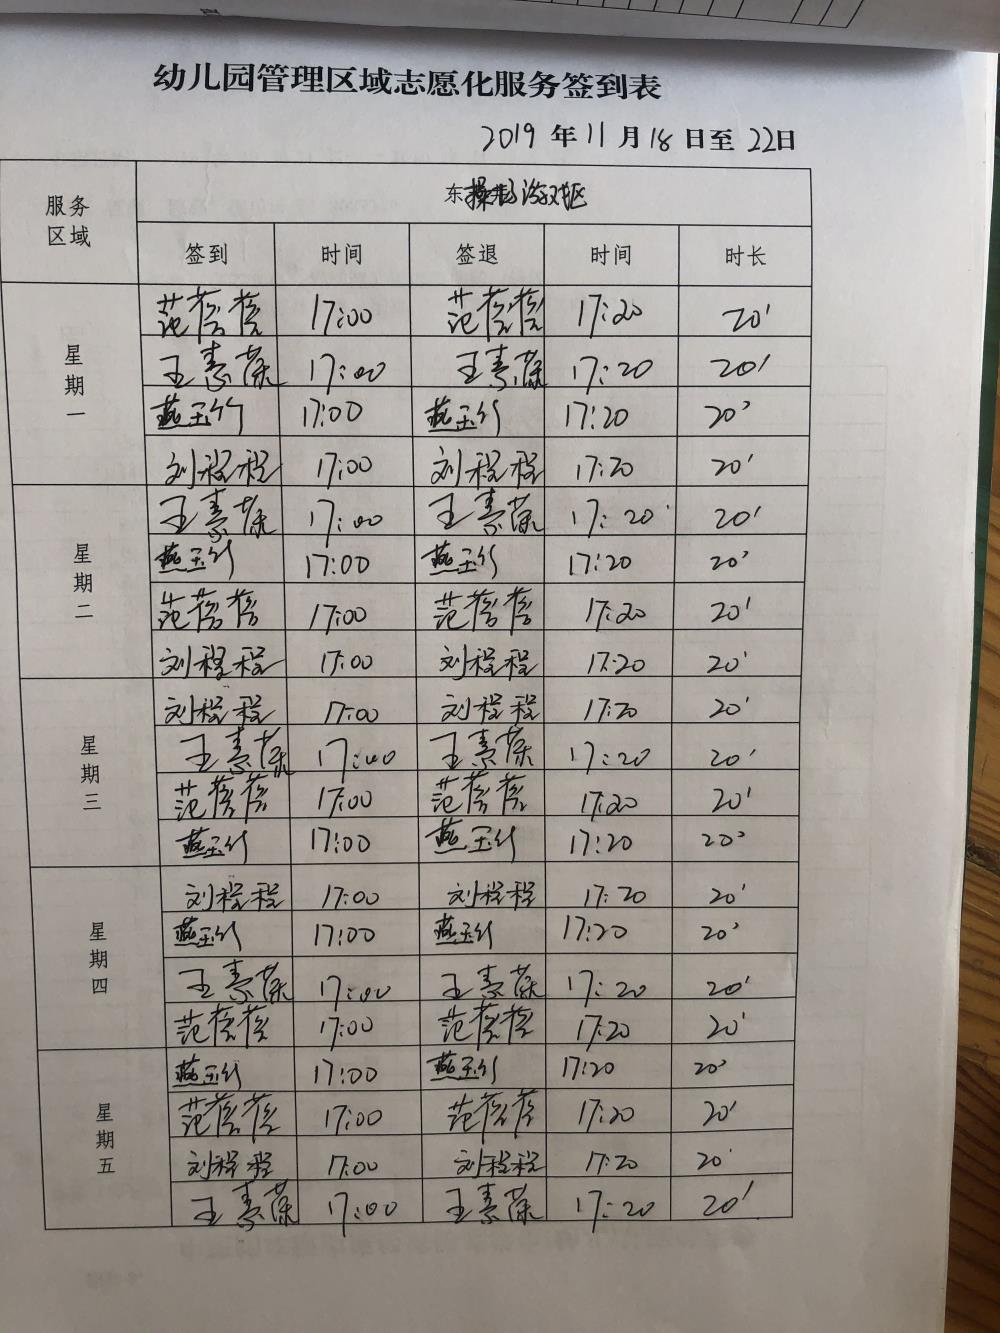 幼儿园管理区域志愿化服务签到表
2019 年 11 月 18 日至 22日
服务区域 东操场游戏区
签到 时间 签退 时间 时长
星期一
范蓉蓉 17:00 范蓉蓉 17:20 20'
王素葆 17:00 王素葆 17:20 20'
燕玉竹 17:00 燕玉竹 17:20 20'
刘程程 17:00 刘程程 17:20 20'
星期二
王素葆 17:00 王素葆 17:20 20'
燕玉竹 17:00 燕玉竹 17:20 20'
范蓉蓉 17:00 范蓉蓉 17:20 20'
刘程程 17:00 刘程程 17:20 20'
星期三
刘程程 17:00 刘程程 17:20 20'
王素葆 17:00 王素葆 17:20 20'
范蓉蓉 17:00 范蓉蓉 17:20 20'
燕玉竹 17:00 燕玉竹 17:20 20'
星期四
刘程程 17:00 刘程程 17:20 20'
燕玉竹 17:00 燕玉竹 17:20 20'
王素葆 17:00 王素葆 17:20 20'
范蓉蓉 17:00 范蓉蓉 17:20 20'
星期五
燕玉竹 17:00 燕玉竹 17:20 20'
范蓉蓉 17:00 范蓉蓉 17:20 20'
刘程程 17:00 刘程程 17:20 20'
王素葆 17:00 王素葆 17:20 20'